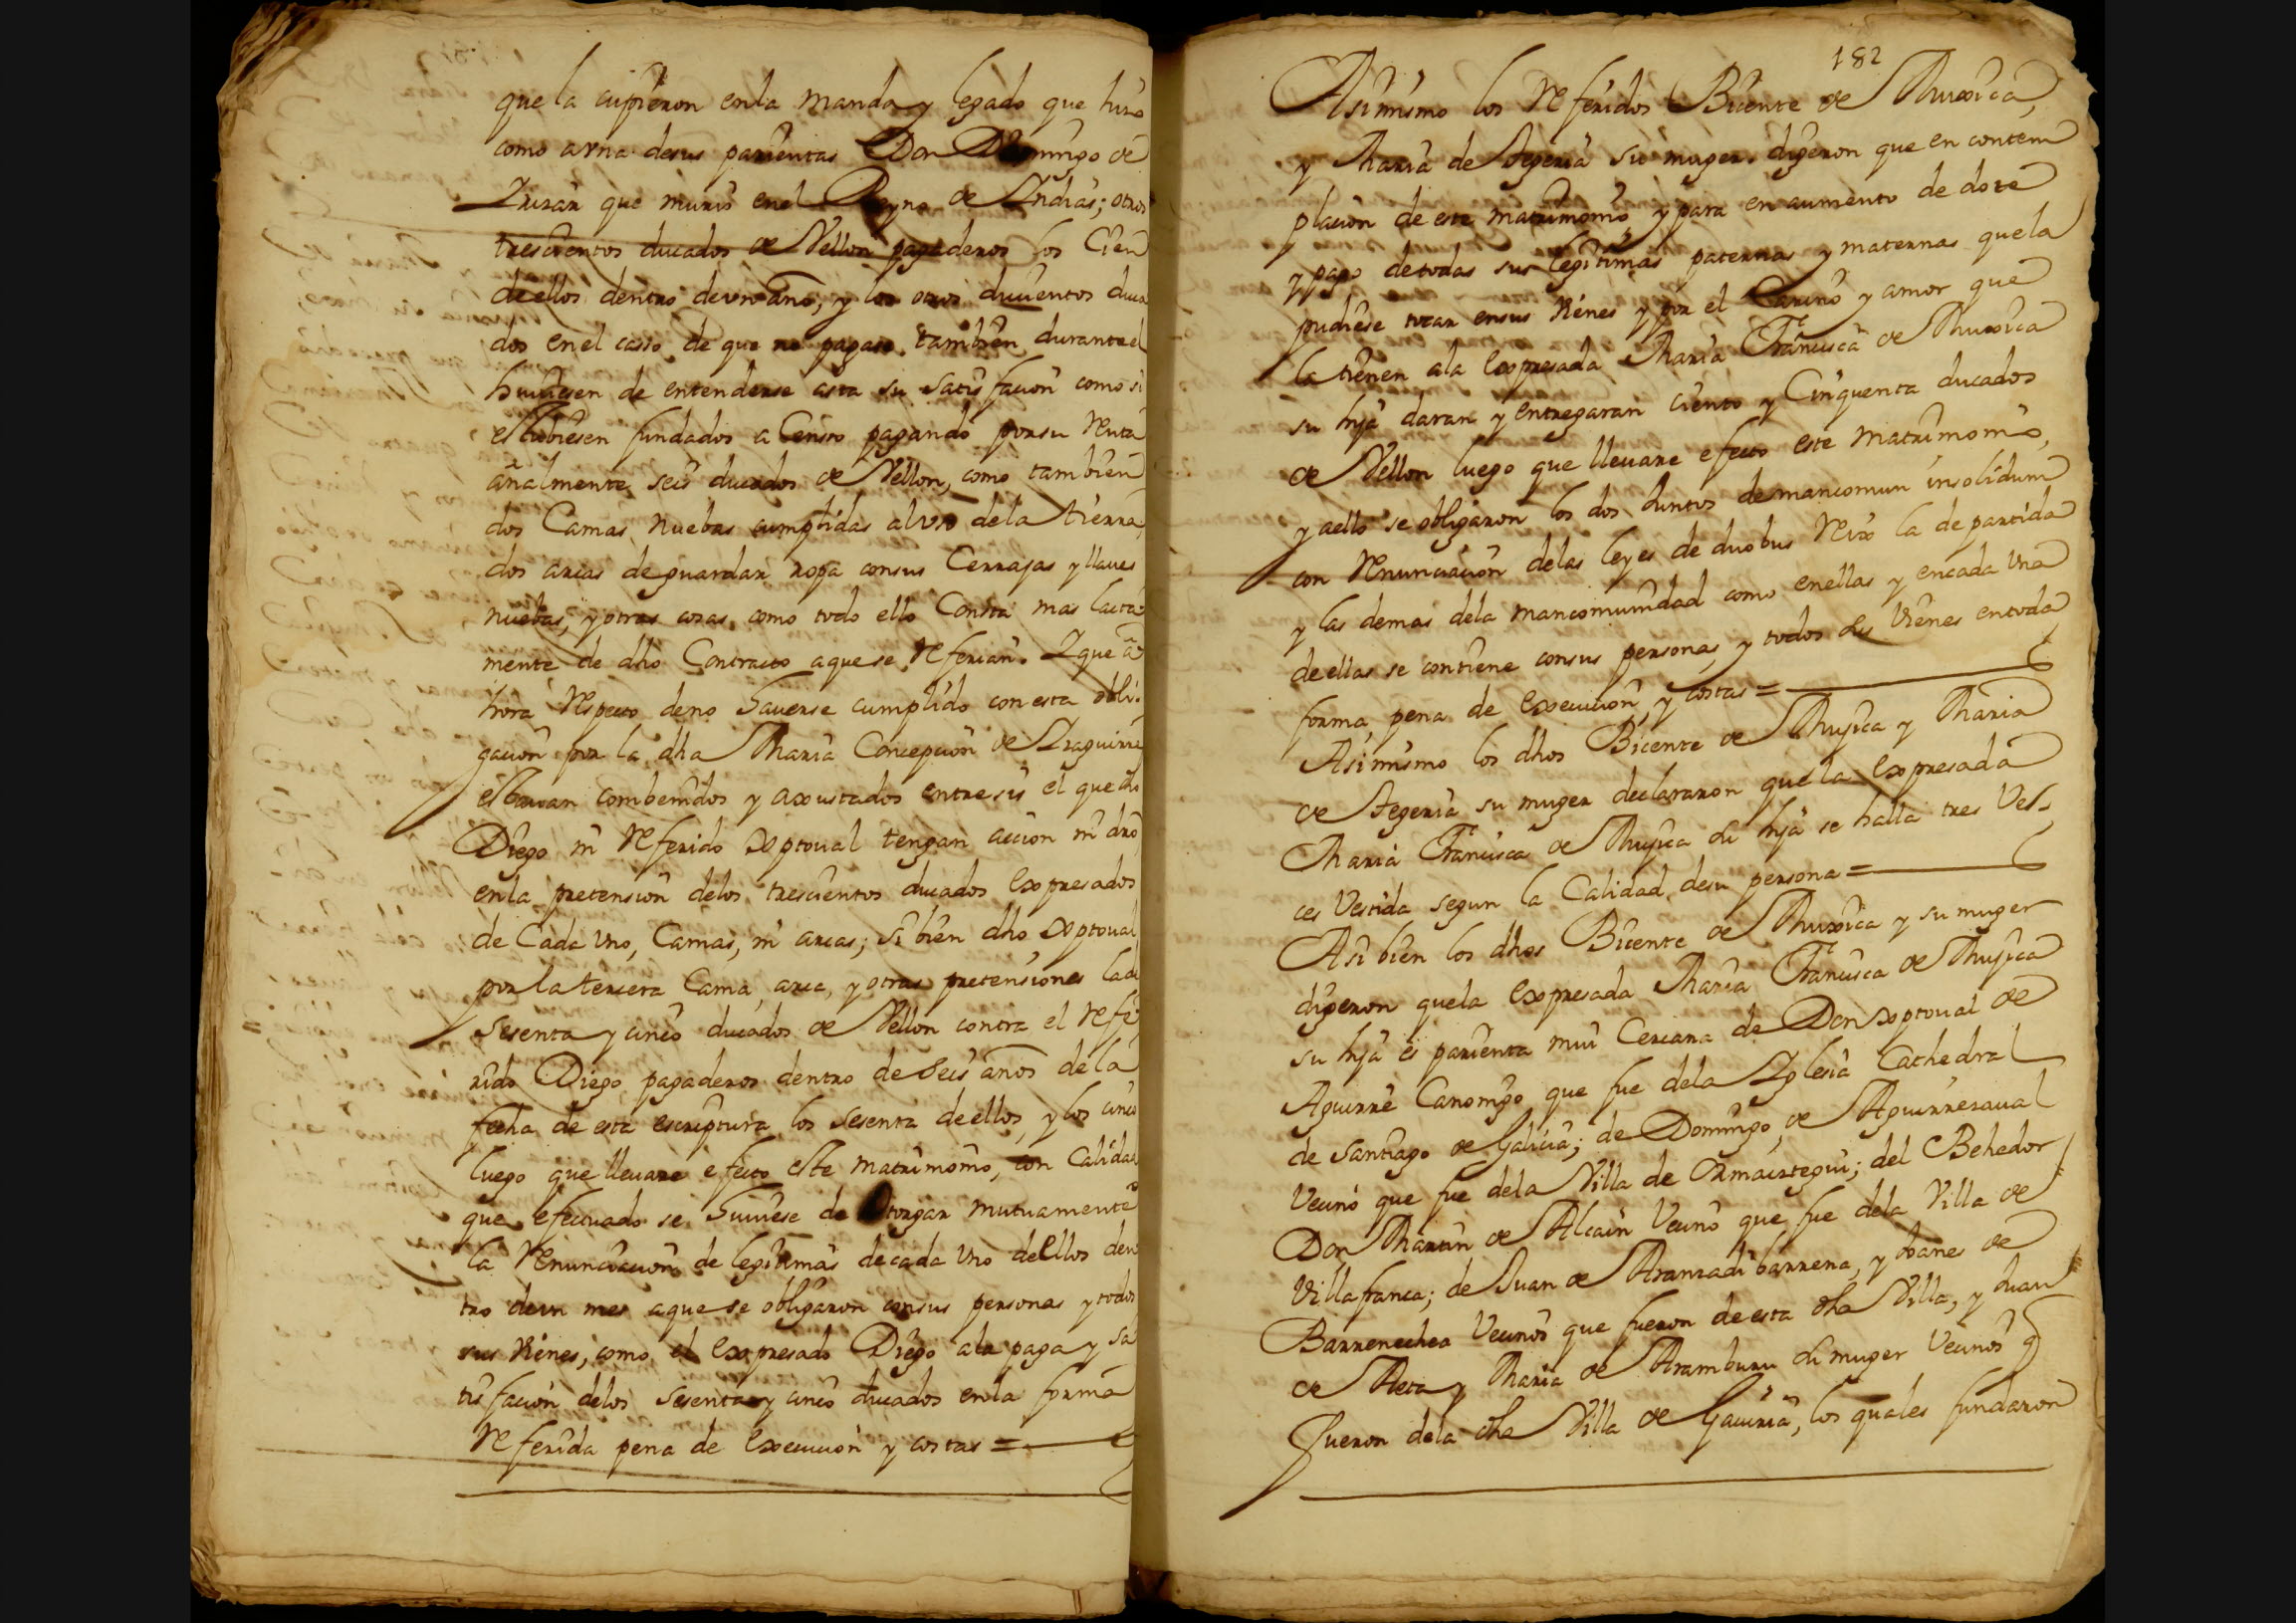 que la cupieron enla manda y legado que hizo
como avna desus parientas Don Domingo de
Irizar que murio enel Reyno de Indias; otros
trescientos ducados de Vellon pagaderos los Cien
deellos dentro deun año, y los otros ducientos duca
dos enel casso de que no pagase tambien durante el
huuiesen de entenderse asta su satisfacion como si
estubiesen fundados a Censo pagando porsu renta
añalmente seis ducados de Vellon, como tambien
dos Camas nuebas cumplidas alvso dela tierra,
dos arcas deguardar ropa consus Cerrajas y llaues
nuebas, y otras cosas, como todo ello Consta mas lata
mente de dho Contracto aquese referian. I que a
hora respecto deno hauerse cumplido con esta obli-
gacion por la dha Maria Concepcion de Izaguirre
estauan combenidos y axustados entresis el que dho
Diego ni referido Xptoual tengan accion ni dro
enla pretension delos trescientos ducados expresados
de Cada vno, Camas, ni arcas; si bien dho Xptoual
por la tercera Cama, arca, y otras pretensiones
sesenta y cinco ducados de Vellon contra el refe
rido Diego, pagaderos dentro de seis años dela
fecha de esta escriptura los sesenta deellos, y los cinco
luego que lleuare efecto este matrimonio, con Calidad
que efectuado se huuiese de Otorgar mutuamente
la renunciacion de legitimas decada vno deellos den
tro deun mes aquese obligaron consus personas y todos
sus vienes, como el expresado Diego ala paga y sa
tisfacion delos sesenta y cinco ducados enla forma
referida pena de execucion y costas =
182
Asimismo los referidos Bicente de Muxica,
y Maria de Segeria su muger digeron que en contem
placion de este matrimonio y para en aumento de dote
y pago detodas sus legitimas paternas y maternas quela
pudiese tocar ensus vienes y por el Cariño y amor que
la tienen ala expresada Maria Francisca de Muxica
su hija daran y entregaran ciento y Cinquenta ducados
de Vellon luego que lleuare efecto este matrimonio,
y aello se obligaron los dos Juntos demancomun insolidum
con renunciacion delas leyes de duobus reix la de partida
y las demas dela mancomunidad como enellas y encada vna
deellas se contiene consus personas, y todos sus vienes entoda
forma, pena de execucion y costas =
Asimismo los dhos Bicente de Mujica y Maria
de Segeria su muger declararon quela expresada
Maria Francisca de Mujica su hija se halla tres Ve-
ces Vestida segun la Calidad desu persona =
Asi bien los dhos Bicente de Muxica y su muger
digeron quela expresada Maria Francisca de Mujica
su hija es parienta mui Cercana de Don Xptoual de
Aguirre Canonigo que fue dela Iglesia Cathedral
de Santiago de Galicia; de Domingo de Aguirrezaual
Vecino que fue dela Villa de Ormaiztegui; del Behedor
Don Martin de Alcain Vecino que fue dela Villa de
Villafranca; de Juan de Aranzadibarrena, y Joanes de
Barrenechea Vecinos que fueron de esta dha Villa, y Juan
de Aeta y Maria de Aramburu su muger Vecinos q
fueron dela dha Villa de Gauiria, los quales fundaron